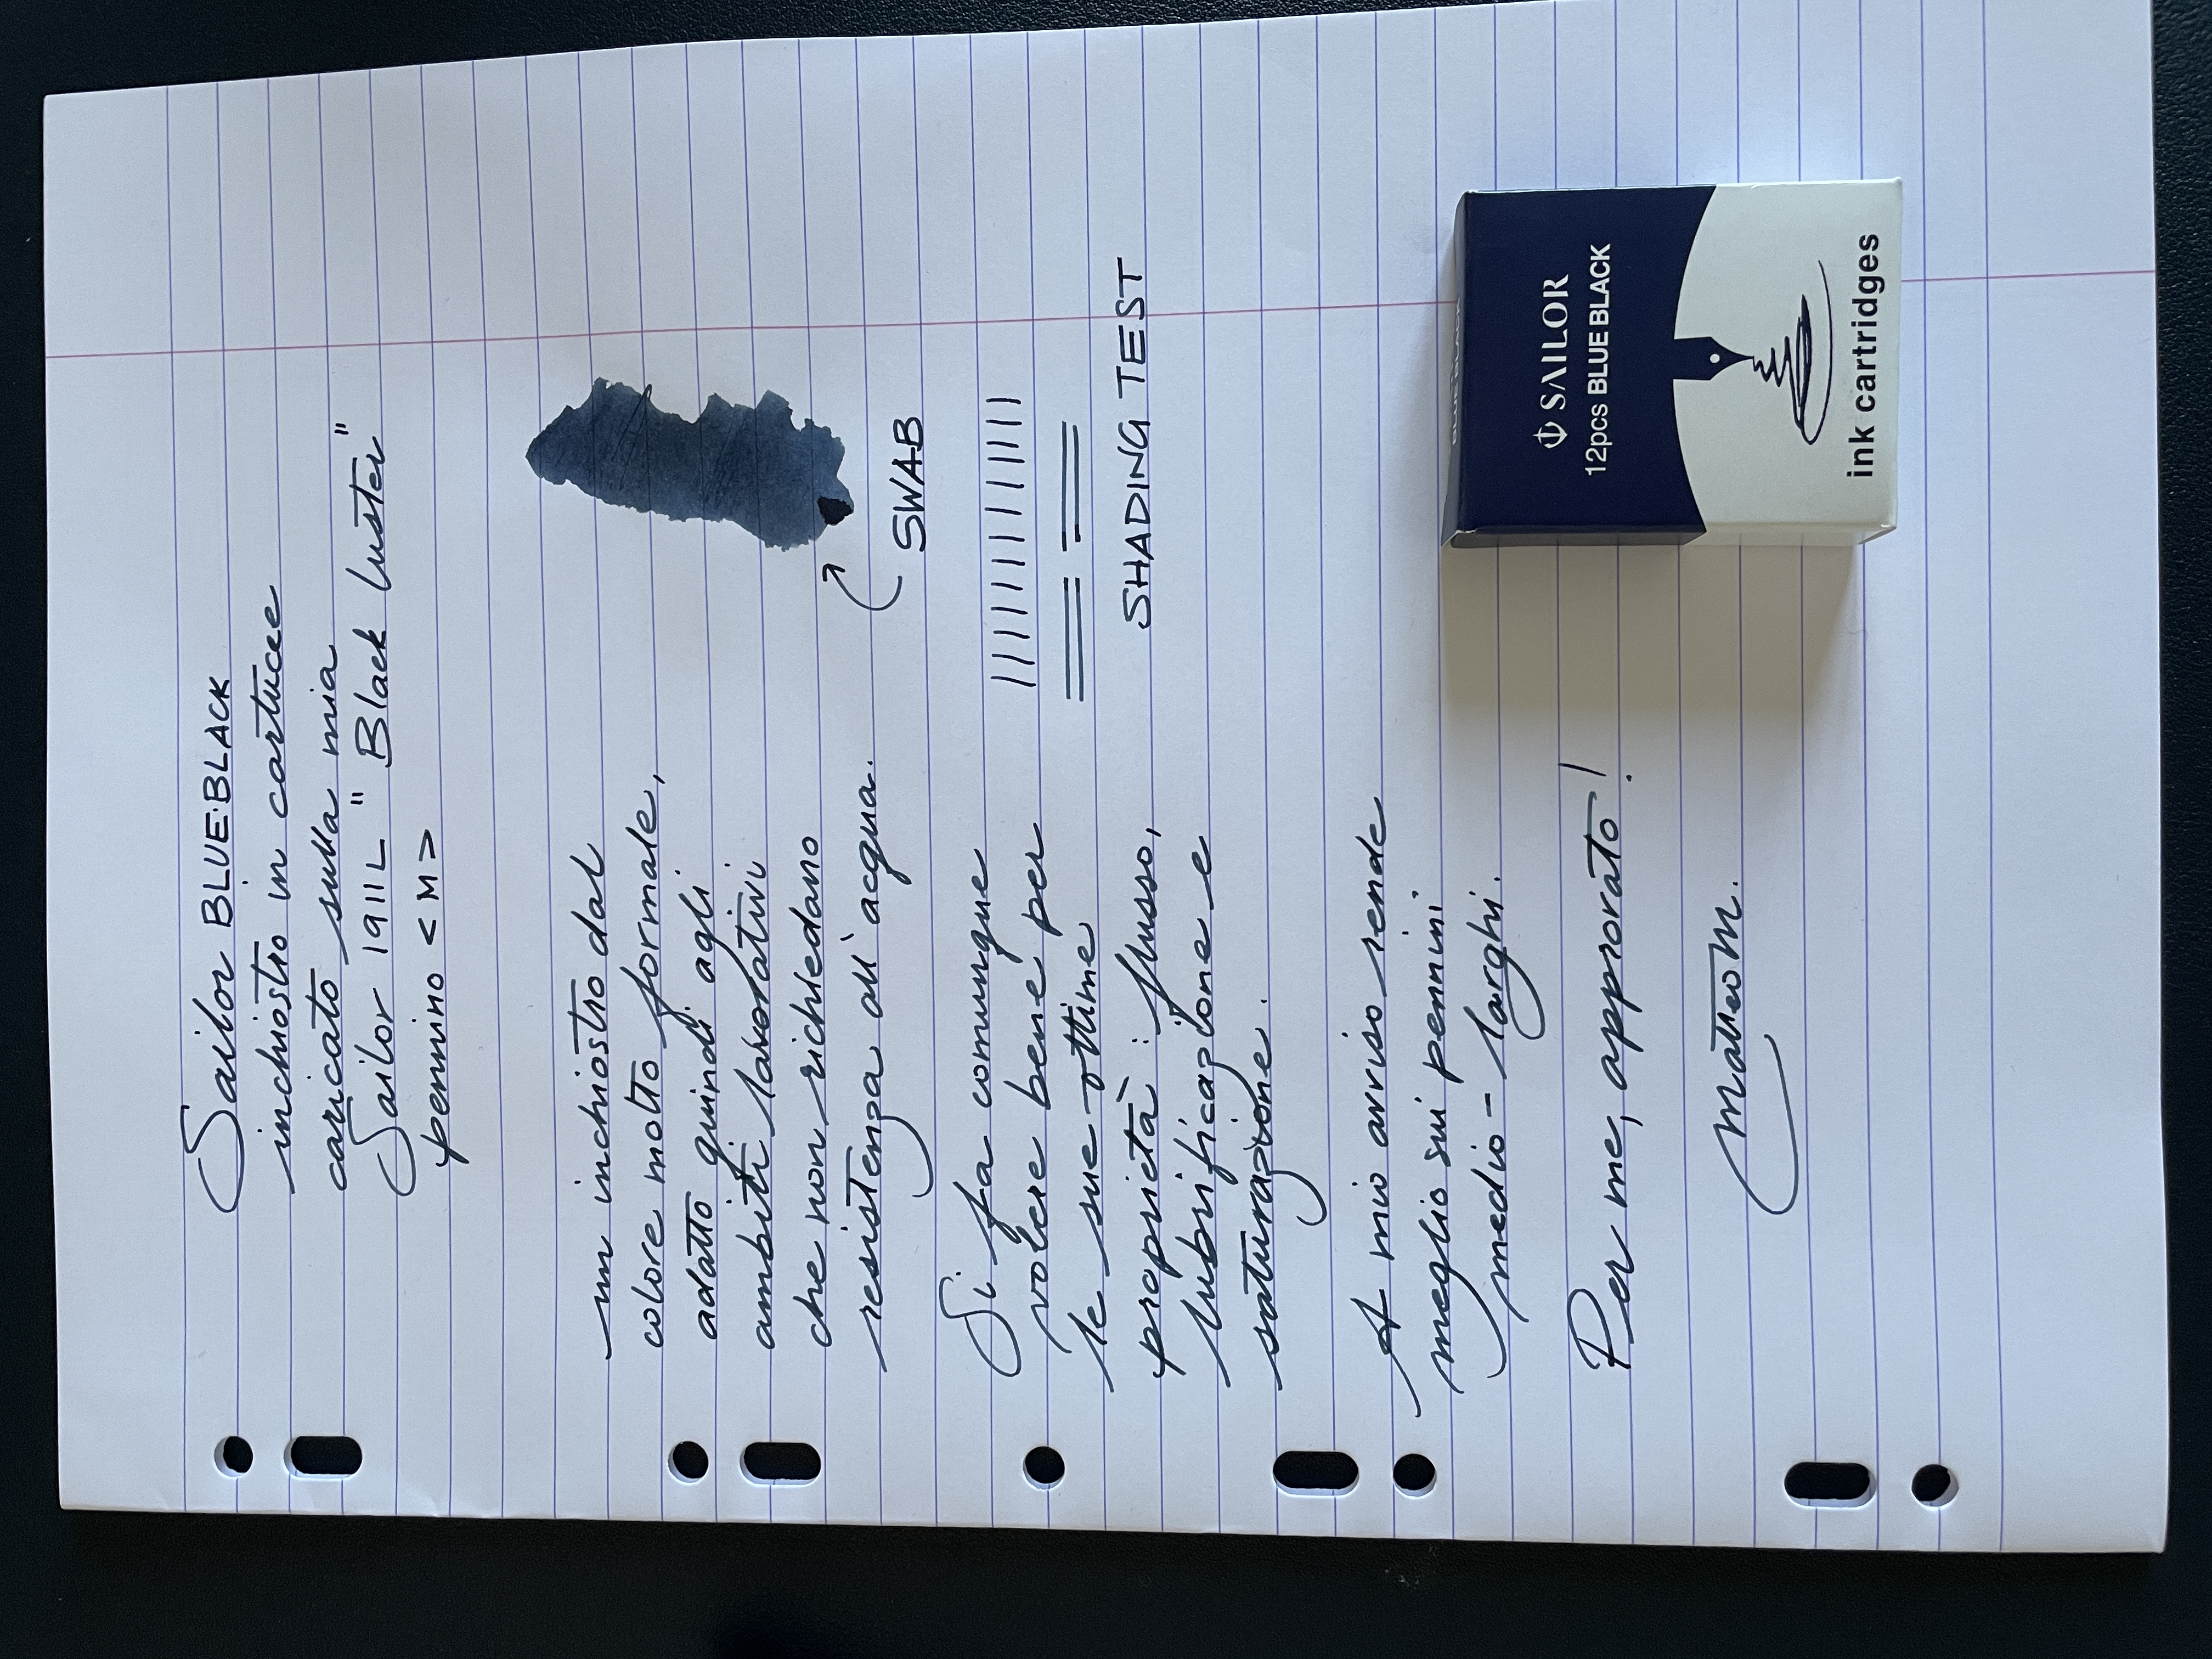 Sailor BLUE·BLACK
inchiostro in cartucce
caricato sulla mia
Sailor 1911L "Black Luster"
pennino <M>
un inchiostro dal
colore molto formale,
adatto quindi agli
ambiti lavorativi
che non richiedano
resistenza all'acqua.
SWAB
Si fa comunque
volere bene per
le sue ottime
proprietà: flusso,
lubrificazione e
saturazione.
SHADING TEST
A mio avviso rende
meglio sui pennini
medio-larghi.
Per me, approvato!
MatteoM.
SAILOR
12pcs BLUE BLACK
ink cartridges